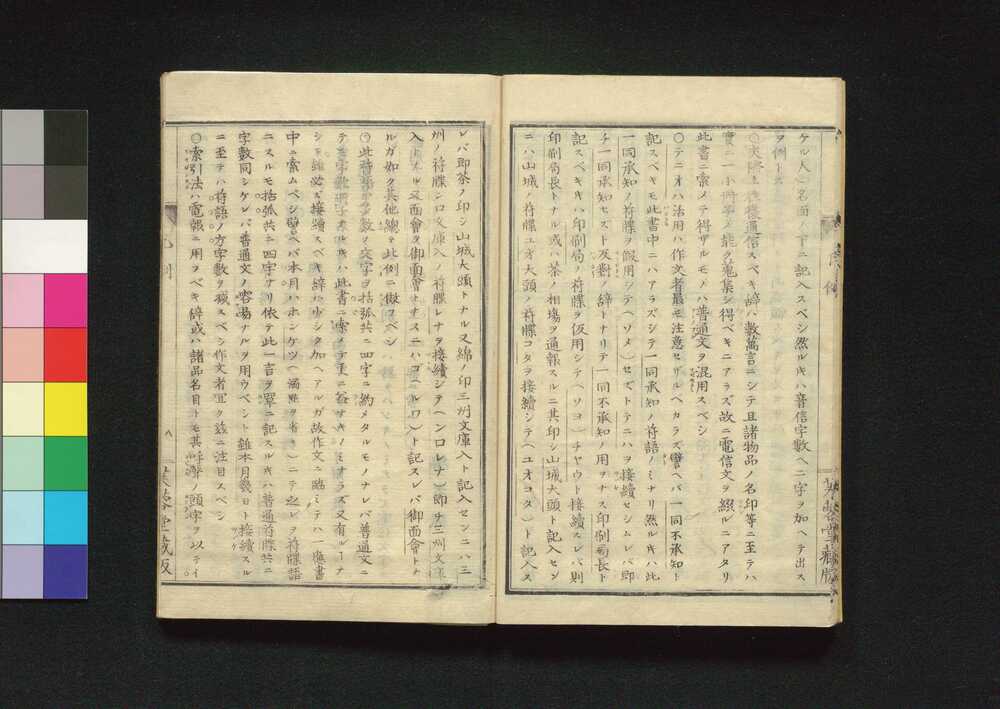 ケル人ノ名面ノ下ニ記入スベシ然ルキハ音信字數ヘ二字ヲ加ヘテ出ス
ヲ例トス
通信スベキ辞ハ數萬言ニシテ且諸物品ノ名印等ニ至テハ
能ク蒐集シ得ベキニアラズ故ニ電信文ヲ綴ルニアタリ
此書ニ索メテ得ザルモノハ普通文ヲ混用スベシ
〇テニオハ活用ハ作文者最モ注意セザルベカラズ譬ヘバ一同不承知ト
記スベキモ此書中ニハアラズシテ一同承知ノ符語ノミナリ然ルキハ此
一同承知ノ符牒ヲ假用シテ(ソメ)セズトテニハヲ接續セシムレバ即
チ一同承知セスト反對ノ辞トナリテ一同不承知ノ用ヲナス印刷局長ト
記スベキキハ印刷局ノ符牒ヲ仮用シテ(ソヨ)チヤウト接續スレバ則
印刷局長トナル或ハ茶ノ相塲ヲ通報スルニ其印シ山城大頭ト記入セン
ニハ山城ノ符牒ユオ大頭ノ符牒コタヲ接續シテ(ユオコタ)ト記入ス
芳潤堂藏版
レバ即茶ノ印シ山城大頭トナル又綿ノ印三州文庫入ト記入センニハ三
州ノ符牒シロ文庫入ノ符牒レナヲ接續シテ(シロレナ)即チ三州文庫
入トスル又面會ヲ御面會トナスニハゴ(ルワ)ト記スレバ御面會トナ
ルガ如ク其他總テ此例ニ倣フベシ
〇此符多數ノ文字ヲ括弧共ニ四字ニ約メタルモノナレバ普通文ニ
此書ニ索メテ
必ズ接續スベキ辞ハ少シタ加ヘアルガ故作文ニ臨ミテハ一應書
中ニ索ムベシ譬ヘバ本月ハホンケツ(濁點ヲ省キ)ニテ之レヲ符牒語
ニスルモ括弧共ニ四字ナリ依テ此一言ヲ單ニ記スルキハ普通符牒共ニ
字數同シケレバ普通文ノ容易ナルヲ用ウベシト雖本月幾日ト接續スル
ニ至テハ符語ノ方字數ヲ減スベシ作文者宜ク茲ニ注目スベシ
〇索引法ハ電報ニ用ヲベキ辞或ハ諸品名目トモ其呼聲ノ頭字ヲ以テイ
凡例